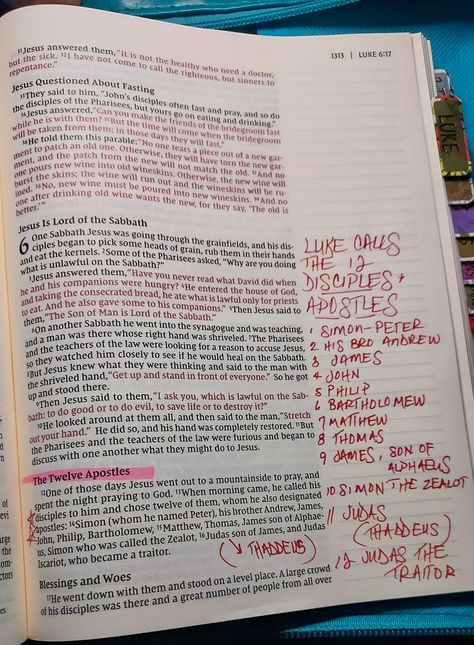 1313 | LUKE 6:17
³¹Jesus answered them, "It is not the healthy who need a doctor,
but the sick. ³²I have not come to call the righteous, but sinners to
repentance."
Jesus Questioned About Fasting
³³They said to him, "John's disciples often fast and pray, and so do
the disciples of the Pharisees, but yours go on eating and drinking."
³⁴Jesus answered, "Can you make the friends of the bridegroom fast
while he is with them? ³⁵But the time will come when the bridegroom
will be taken from them; in those days they will fast."
³⁶He told them this parable: "No one tears a piece out of a new gar-
ment to patch an old one. Otherwise, they will have torn the new gar-
ment, and the patch from the new will not match the old. ³⁷And no
one pours new wine into old wineskins. Otherwise, the new wine will
burst the skins; the wine will run out and the wineskins will be ru-
ined. ³⁸No, new wine must be poured into new wineskins. ³⁹And no
one after drinking old wine wants the new, for they say, 'The old is
better.'"
Jesus Is Lord of the Sabbath
6 One Sabbath Jesus was going through the grainfields, and his dis-
ciples began to pick some heads of grain, rub them in their hands
and eat the kernels. ²Some of the Pharisees asked, "Why are you doing
what is unlawful on the Sabbath?"
³Jesus answered them, "Have you never read what David did when
he and his companions were hungry? ⁴He entered the house of God,
and taking the consecrated bread, he ate what is lawful only for priests
to eat. And he also gave some to his companions." ⁵Then Jesus said to
them, "The Son of Man is Lord of the Sabbath."
⁶On another Sabbath he went into the synagogue and was teaching,
and a man was there whose right hand was shriveled. ⁷The Pharisees
and the teachers of the law were looking for a reason to accuse Jesus,
so they watched him closely to see if he would heal on the Sabbath.
⁸But Jesus knew what they were thinking and said to the man with
the shriveled hand, "Get up and stand in front of everyone." So he got
up and stood there.
⁹Then Jesus said to them, "I ask you, which is lawful on the Sab-
bath: to do good or to do evil, to save life or to destroy it?"
¹⁰He looked around at them all, and then said to the man, "Stretch
out your hand." He did so, and his hand was completely restored. ¹¹But
the Pharisees and the teachers of the law were furious and began to
discuss with one another what they might do to Jesus.
The Twelve Apostles
¹²One of those days Jesus went out to a mountainside to pray, and
spent the night praying to God. ¹³When morning came, he called his
disciples to him and chose twelve of them, whom he also designated
apostles: ¹⁴Simon (whom he named Peter), his brother Andrew, James,
John, Philip, Bartholomew, ¹⁵Matthew, Thomas, James son of Alphae-
us, Simon who was called the Zealot, ¹⁶Judas son of James, and Judas
Iscariot, who became a traitor.
(↘ THADDEUS)
Blessings and Woes
¹⁷He went down with them and stood on a level place. A large crowd
of his disciples was there and a great number of people from all over
LUKE CALLS
THE 12
DISCIPLES +
APOSTLES
1 SIMON-PETER
2 HIS BRO ANDREW
3 JAMES
4 JOHN
5 PHILIP
6 BARTHOLOMEW
7 MATTHEW
8 THOMAS
9 JAMES, SON OF
ALPHAEUS
10 SIMON THE ZEALOT
11 JUDAS
(THADDEUS)
12 JUDAS THE
TRAITOR
LUKE